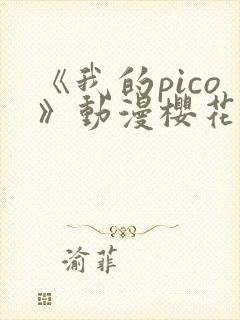 《我的pico
》動漫櫻花
渝菲